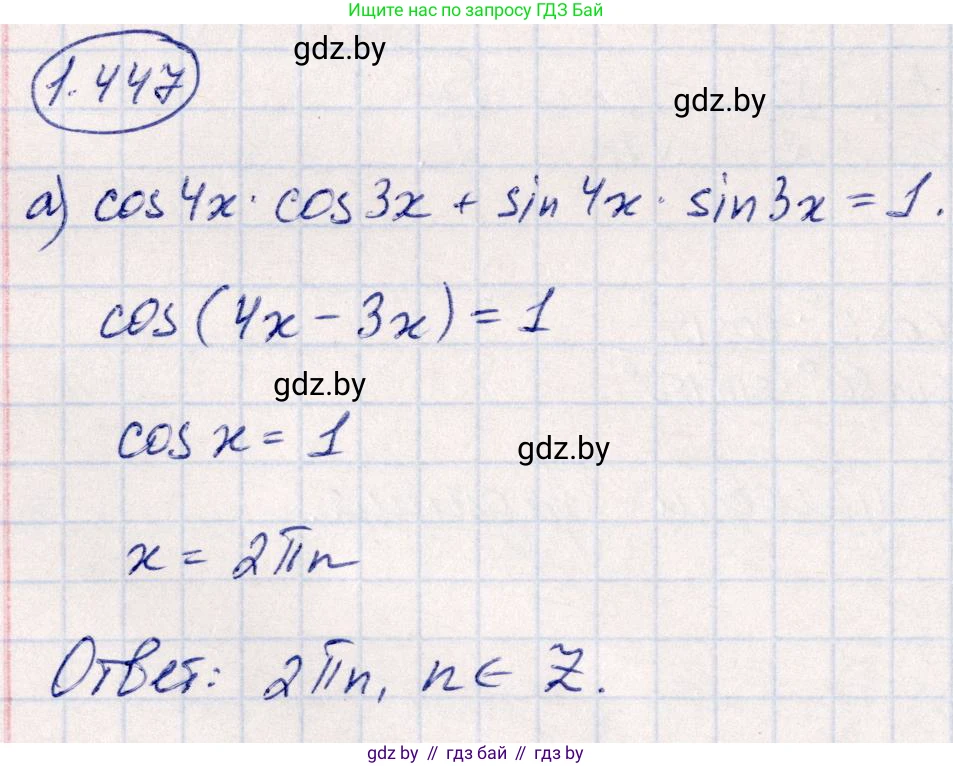 Ищите нас по запросу ГДЗ Бай
gdz.by
1.447
gdz.by
а) cos 4x · cos 3x + sin 4x · sin 3x = 1.
cos (4x - 3x) = 1
gdz.by
cos x = 1
gdz.by
x = 2πn
Ответ: 2πn, n ∈ Z.
gdz.by // гдз бай // гдз.by